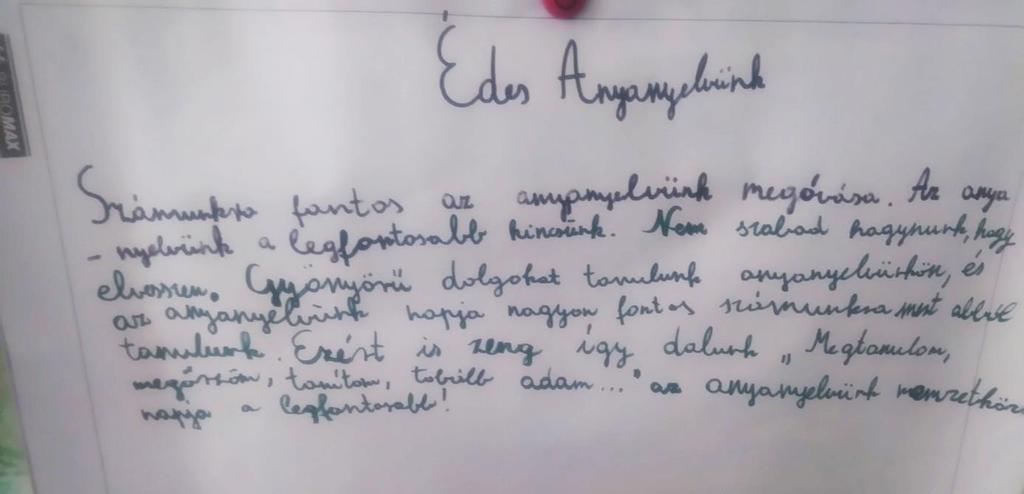 Édes Anyanyelvünk
Számunkra fontos az anyanyelvünk megóvása. Az anya
- nyelvünk a legfontosabb kincsünk. Nem szabad hagynunk, hogy
elvesszen. Gyönyörű dolgokat tanulunk anyanyelvünkön, és
az anyanyelvünk napja nagyon fontos számunkra mert abból
tanulunk. Ezért is zeng így dalunk „Megtanulom,
megőrzöm, tanítom, tovább adom..." az anyanyelvünk nemzetköz
napja a legfontosabb!
EUROMAX